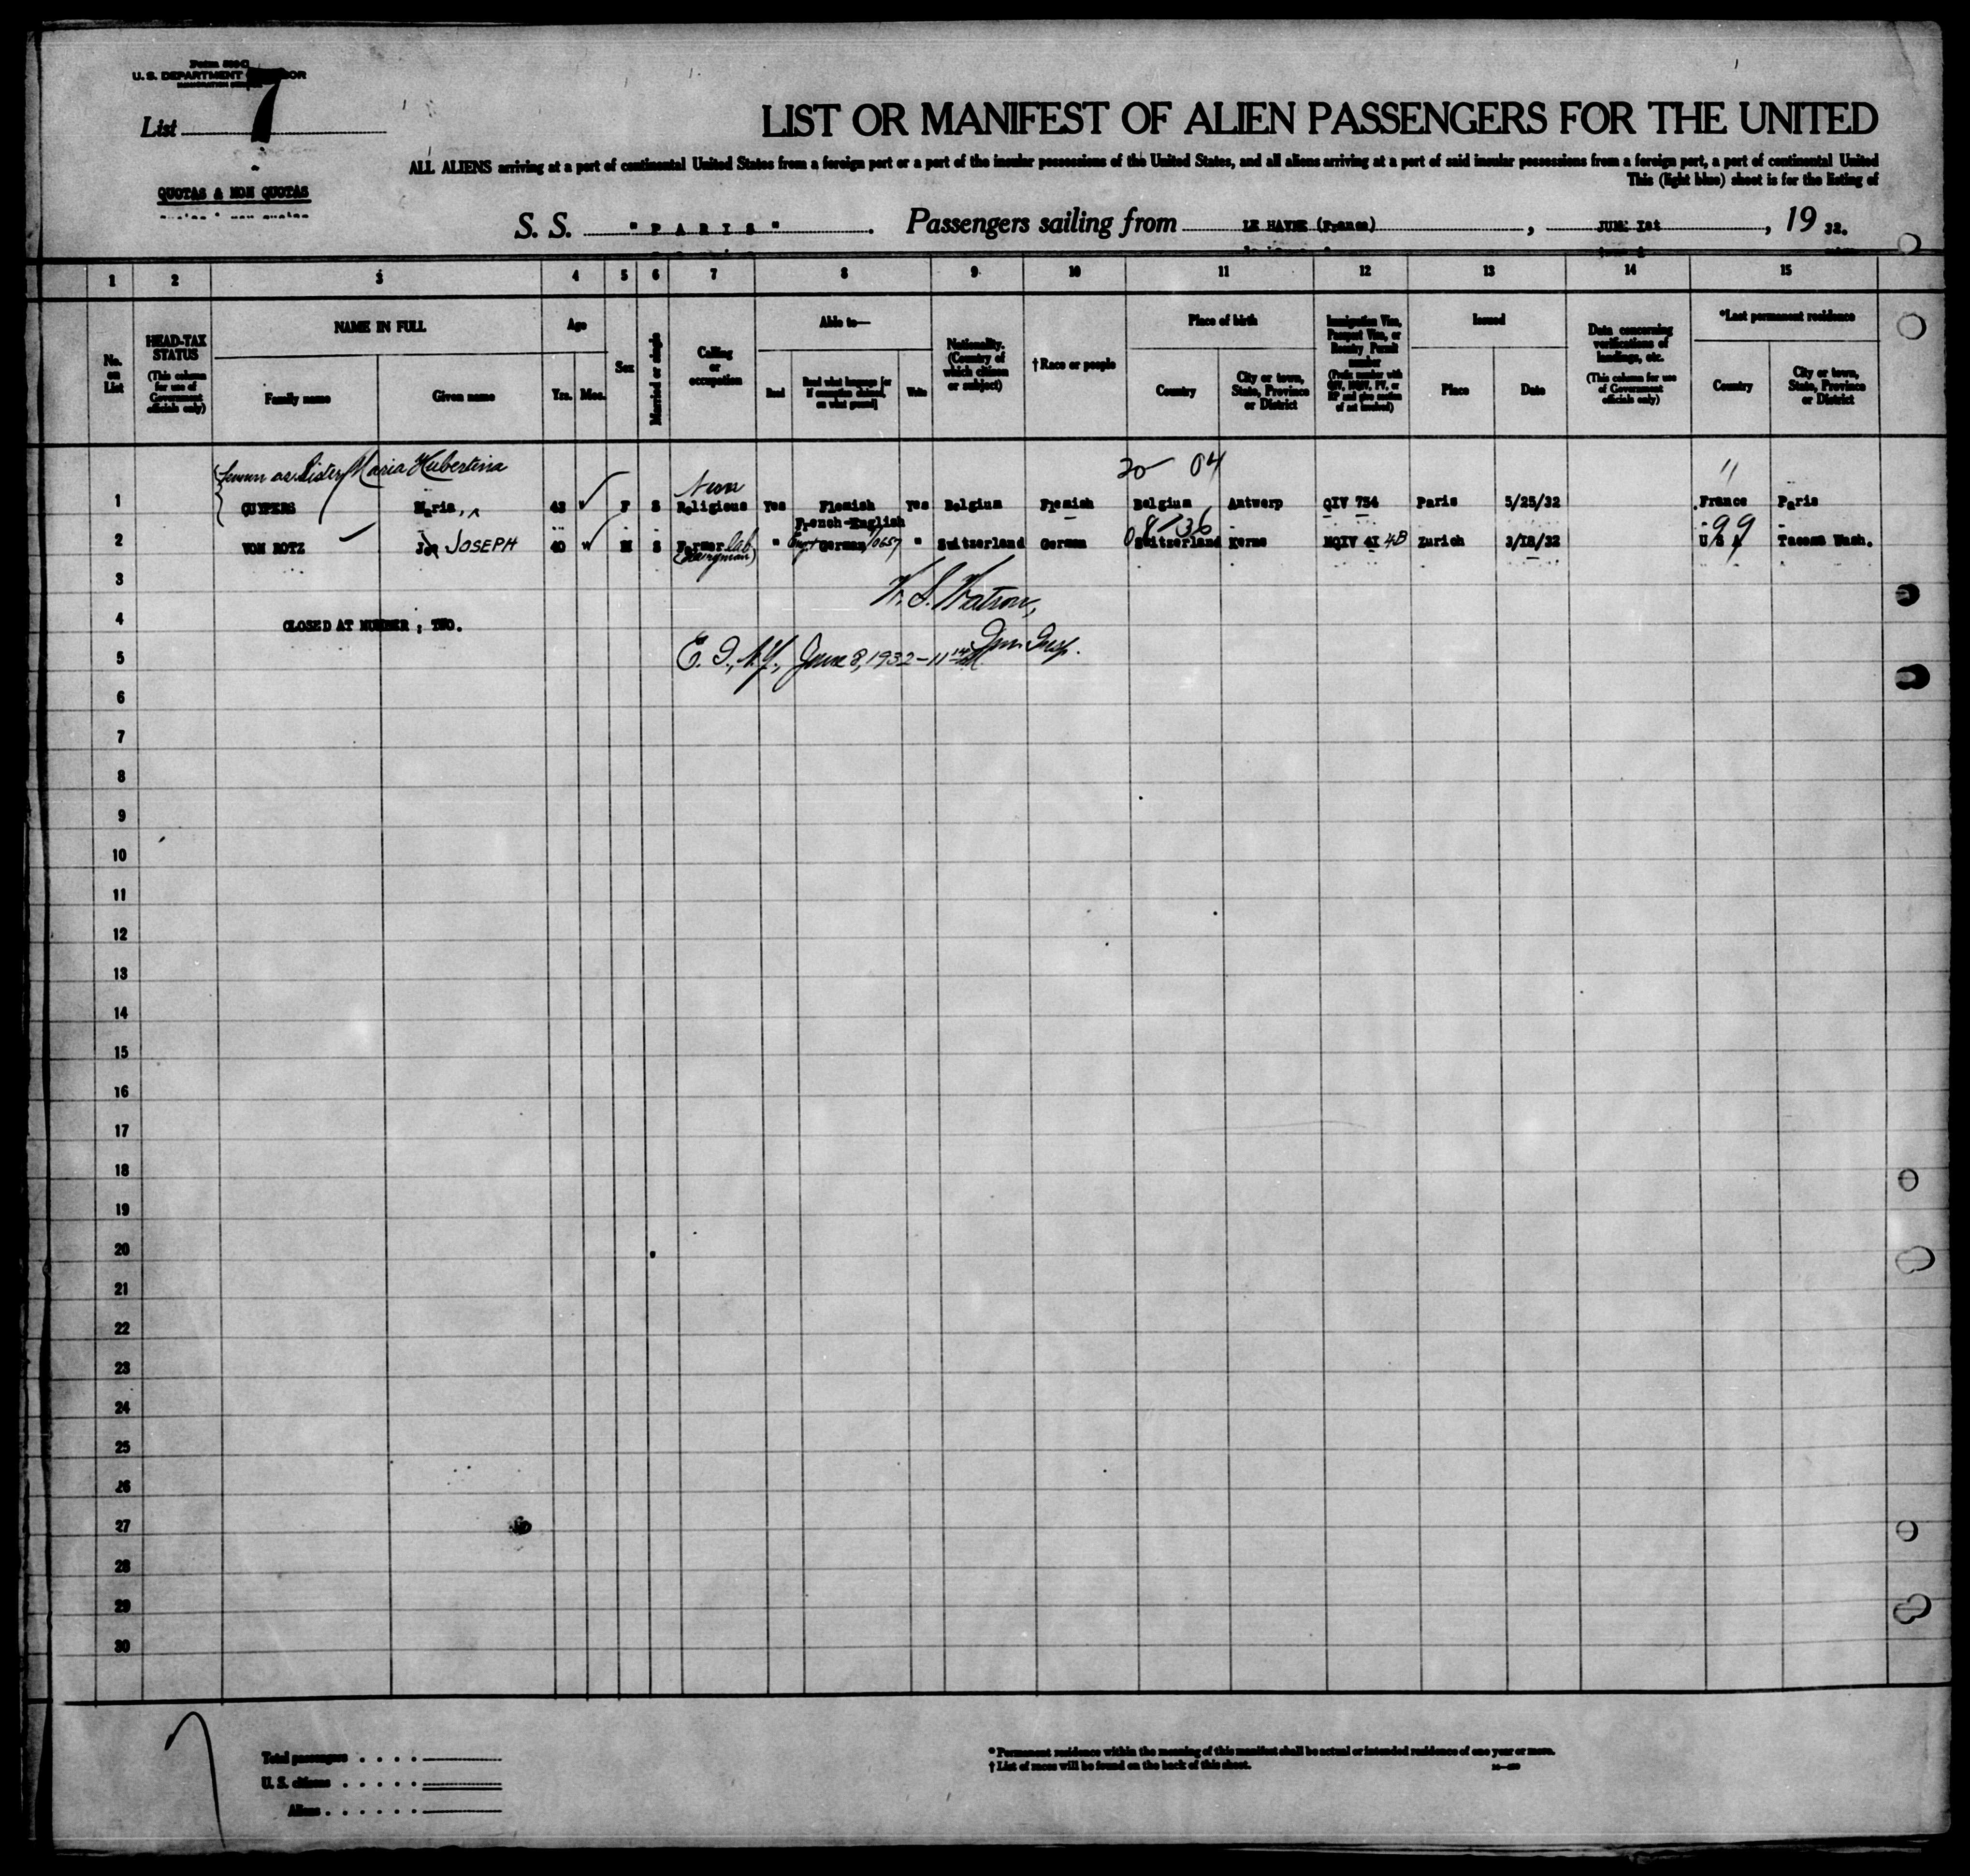 Form 500 C
U. S. DEPARTMENT OF LABOR
List 7
QUOTAS & NON QUOTAS
LIST OR MANIFEST OF ALIEN PASSENGERS FOR THE UNITED
ALL ALIENS arriving at a port of continental United States from a foreign port or a port of the insular possessions of the United States, and all aliens arriving at a port of said insular possessions from a foreign port, a port of continental United
This (light blue) sheet is for the listing of
S. S. "PARIS". Passengers sailing from LE HAVRE (France), JUNE Ist, 19 32.
1 2 3 4 5 6 7 8 9 10 11 12 13 14 15
No. on List
HEAD-TAX STATUS (This column for use of Government officials only)
NAME IN FULL
Family name
Given name
Age
Yrs.
Mos.
Sex
Married or single
Calling or occupation
Able to—
Read
Read what language [or if exemption claimed, on what ground]
Write
Nationality. (Country of which citizen or subject)
†Race or people
Place of birth
Country
City or town, State, Province or District
Immigration Visa, Passport Visa, or Reentry Permit number (Prefix number with QIV, NQIV, PV, or RP and give section of act involved)
Issued
Place
Date
Data concerning verifications of landings, etc. (This column for use of Government officials only)
*Last permanent residence
Country
City or town, State, Province or District
known as Sister Maria Hubertina
30 04
11
Nun
1 CUYPERS Maria, 43 F S Religious Yes Flemish Yes Belgium Flemish Belgium Antwerp QIV 754 Paris 5/25/32 France Paris
French-English
08 736
99
2 VON ROTZ JOSEPH 40 M S Farmer lab " German " Switzerland German Switzerland Kerns NQIV 4I 4B Zurich 3/I8/32 U S A Tacoma Wash.
3
W. S. Watson,
4 CLOSED AT NUMBER ; TWO.
Imm. Insp.
5 E. I., N.Y., June 8, 1932 - 11
6
7
8
9
10
11
12
13
14
15
16
17
18
19
20
21
22
23
24
25
26
27
28
29
30
Total passengers
U. S. citizens
Aliens
* Permanent residence within the meaning of this manifest shall be actual or intended residence of one year or more.
† List of races will be found on the back of this sheet.